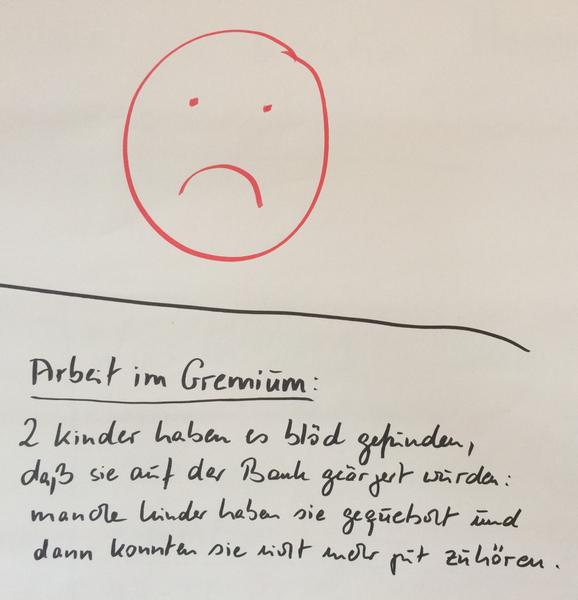 Arbeit im Gremium:
2 Kinder haben es blöd gefunden,
daß sie auf der Bank geärgert wurden:
manche Kinder haben sie gequetscht und
dann konnten sie nicht mehr gut zuhören.